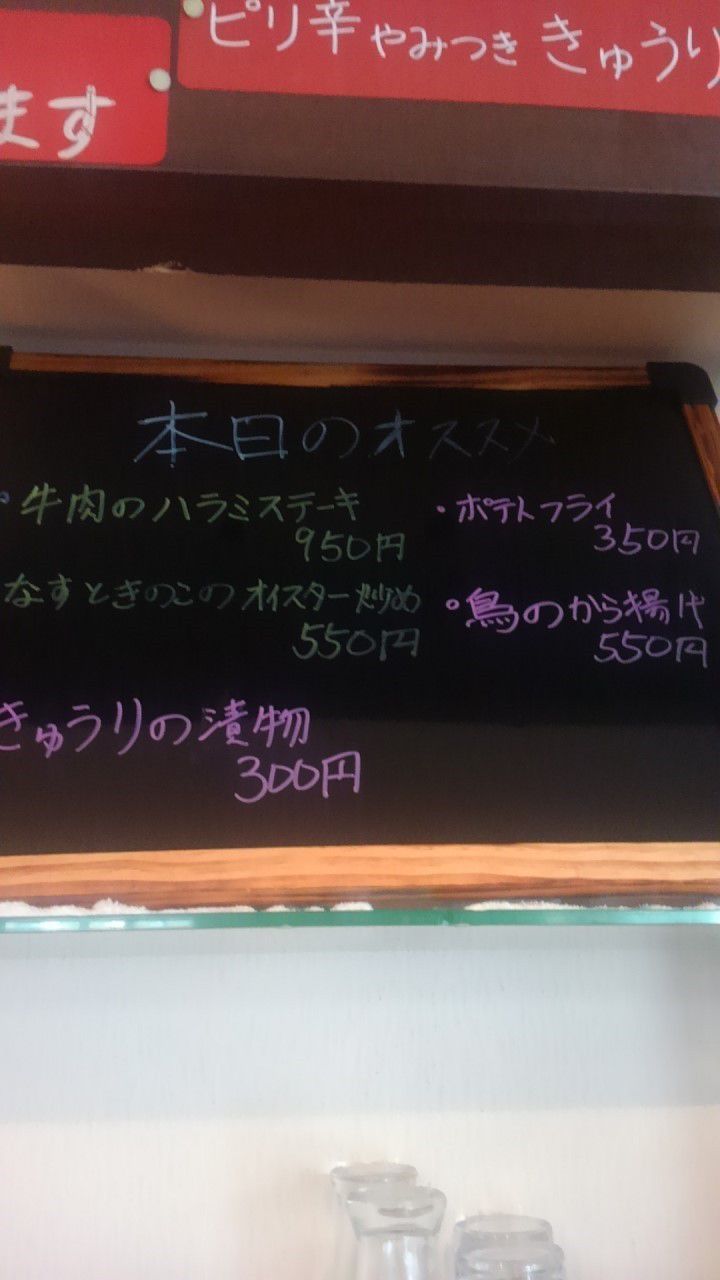 ピリ辛やみつききゅうり
ます
本日のオススメ
牛肉のハラミステーキ
950円
なすときのこのオイスター炒め
550円
きゅうりの漬物
300円
・ポテトフライ
350円
鳥のから揚げ
550円